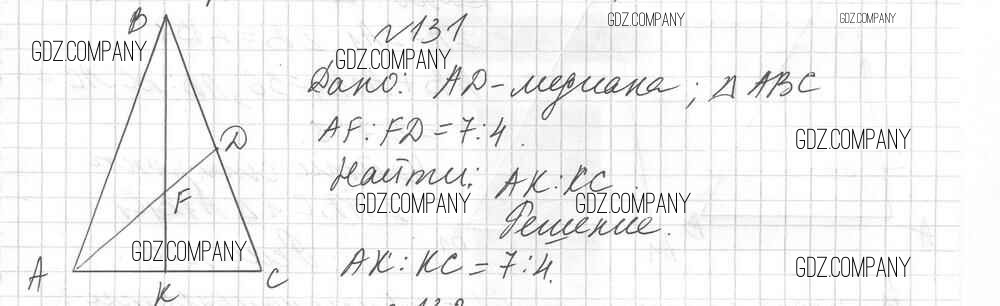 N131
GDZ.COMPANY
GDZ.COMPANY
B
GDZ.COMPANY
GDZ.COMPANY
Дано: AD - медиана; △ABC
AF:FD = 7:4.
GDZ.COMPANY
D
Найти: AK:KC.
F
GDZ.COMPANY
GDZ.COMPANY
Решение.
GDZ.COMPANY
AK:KC = 7:4.
GDZ.COMPANY
A
K
C